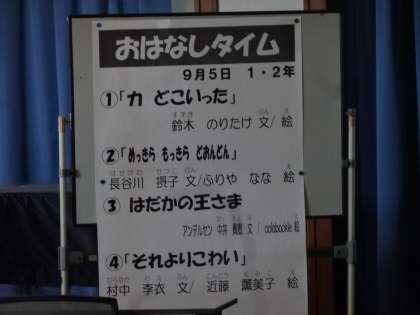 おはなしタイム
9月5日 1・2年
①「カ どこいった」
鈴木 のりたけ 文/ 絵
②「めっきら もっきら どおんどん」
長谷川 摂子 文/ふりや なな 絵
③ はだかの王さま
アンデルセン 中井 貴惠 文 / colobockle 絵
④「それよりこわい」
村中 李衣 文/ 近藤 薫美子 絵